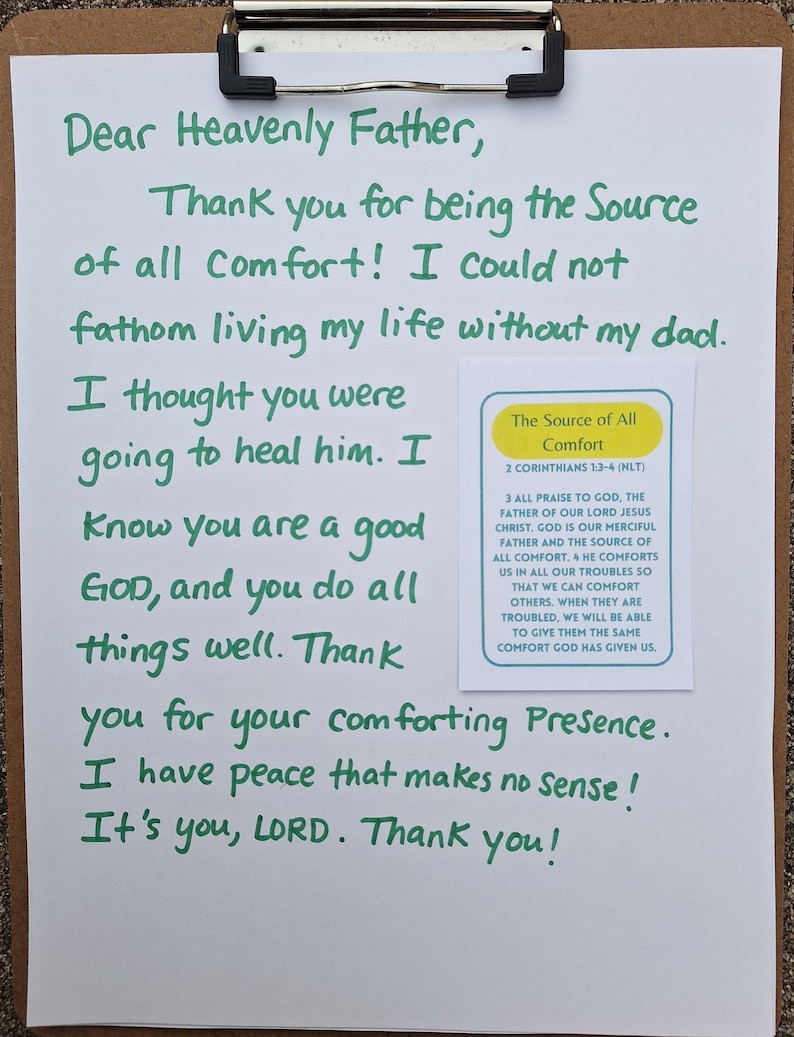 Dear Heavenly Father,
Thank you for being the Source
of all Comfort! I could not
fathom living my life without my dad.
I thought you were
going to heal him. I
Know you are a good
GOD, and you do all
things well. Thank
you for your comforting Presence.
I have peace that makes no sense!
It's you, LORD. Thank you!
The Source of All
Comfort
2 CORINTHIANS 1:3-4 (NLT)
3 ALL PRAISE TO GOD, THE
FATHER OF OUR LORD JESUS
CHRIST. GOD IS OUR MERCIFUL
FATHER AND THE SOURCE OF
ALL COMFORT. 4 HE COMFORTS
US IN ALL OUR TROUBLES SO
THAT WE CAN COMFORT
OTHERS. WHEN THEY ARE
TROUBLED, WE WILL BE ABLE
TO GIVE THEM THE SAME
COMFORT GOD HAS GIVEN US.